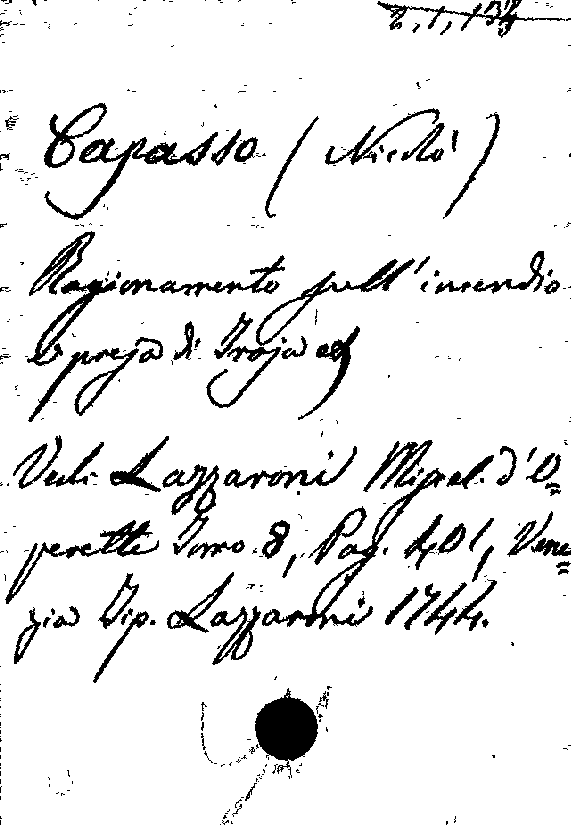 2, 1, 134
Capasso (Nicolò)
Ragionamento sull'incendio
e presa di Troja
Vedi Lazzaroni Miscel. d'O=
perette Tomo 8, Pag. 401, Vene=
zia Tip. Lazzaroni 1744.